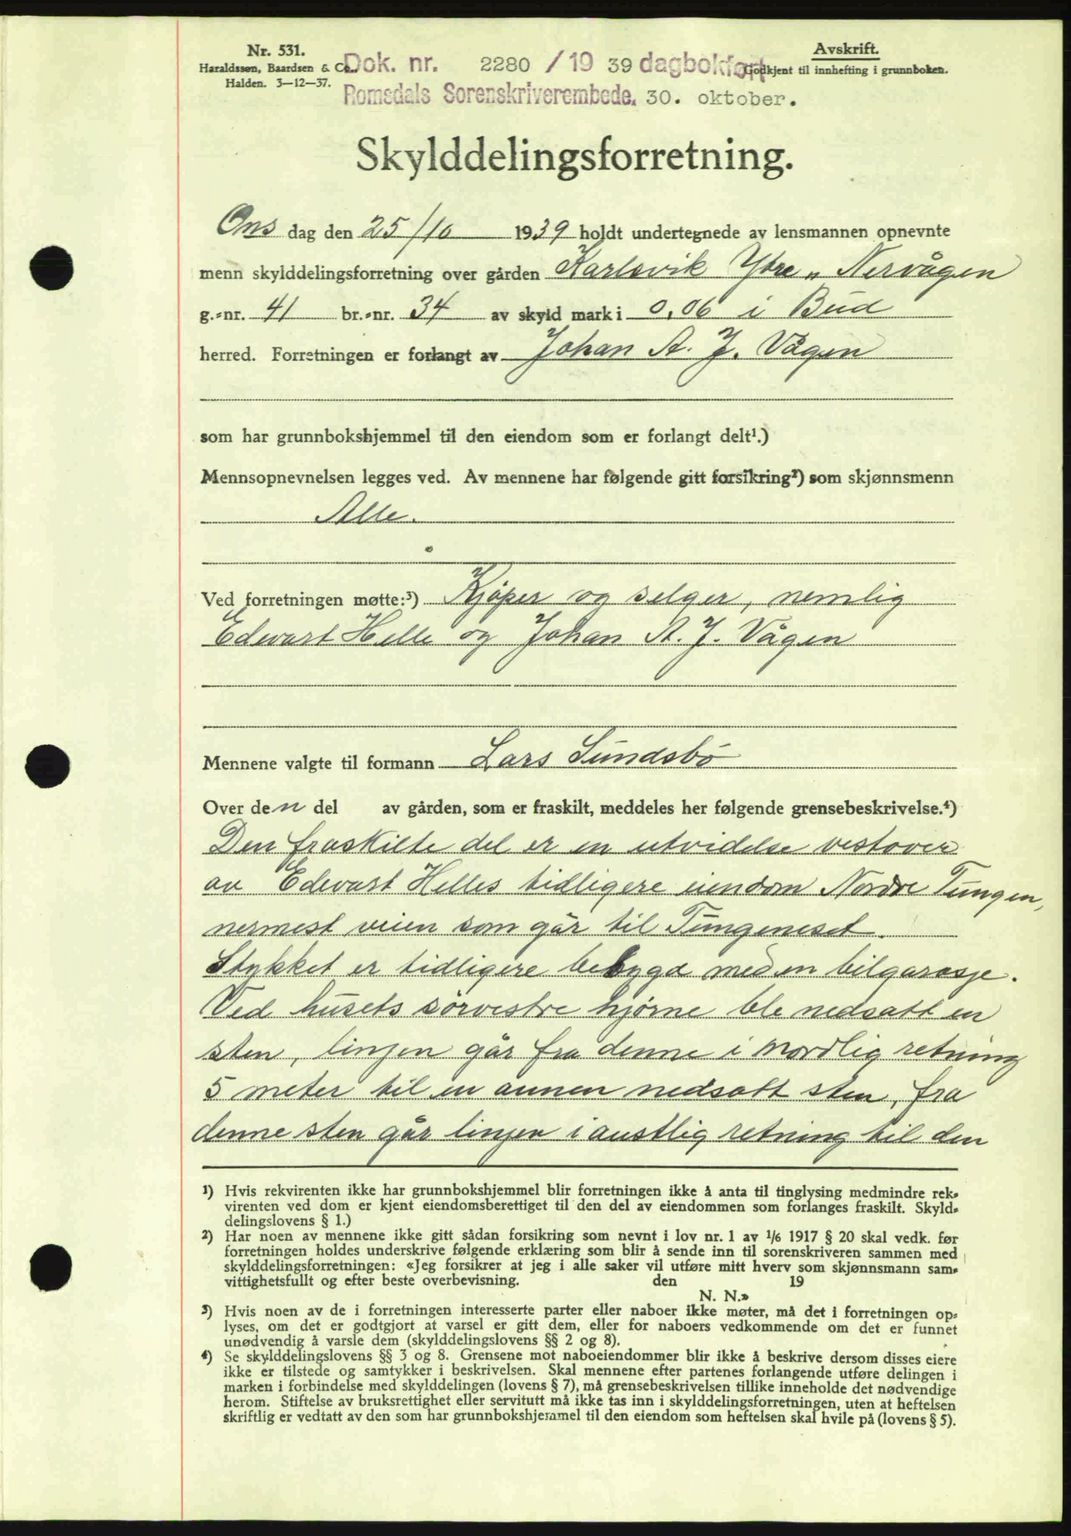 Nr. 531.
Haraldssen, Baardsen & Co.
Halden. 3—12—37.
Avskrift.
Godkjent til innhefting i grunnboken.
Dok. nr. 2280 / 19 39 dagbokført
Romsdals Sorenskriverembede. 30. oktober.
Skylddelingsforretning.
Ons dag den 25/10 1939 holdt undertegnede av lensmannen opnevnte
menn skylddelingsforretning over gården Karlsvik Ytre „ Nervågen
g.-nr. 41 br.-nr. 34 av skyld mark i 0,06 i Bud
herred. Forretningen er forlangt av Johan A. J. Vågen
som har grunnbokshjemmel til den eiendom som er forlangt delt¹.)
Mennsopnevnelsen legges ved. Av mennene har følgende gitt forsikring²) som skjønnsmenn
Alle.
Ved forretningen møtte:³) Kjöper og selger, nemlig
Edevart Helle og Johan A. J. Vågen
Mennene valgte til formann Lars Sundsbö
Over den del av gården, som er fraskilt, meddeles her følgende grensebeskrivelse.⁴)
Den fraskilte del er en utvidelse vestover
av Edevart Helles tidligere eiendom Nordre Tungen,
nermest veien som går til Tungeneset.
Stykket er tidligere bebygd med en bilgarasje.
Ved husets sörvestre hjörne ble nedsatt en
sten, linjen går fra denne i nordlig retning
5 meter til en annen nedsatt sten, fra
denne sten går linjen i austlig retning til den
¹) Hvis rekvirenten ikke har grunnbokshjemmel blir forretningen ikke å anta til tinglysing medmindre rek-
virenten ved dom er kjent eiendomsberettiget til den del av eiendommen som forlanges fraskilt. Skyld-
delingslovens § 1.)
²) Har noen av mennene ikke gitt sådan forsikring som nevnt i lov nr. 1 av 1/6 1917 § 20 skal vedk. før
forretningen holdes underskrive følgende erklæring som blir å sende inn til sorenskriveren sammen med
skylddelingsforretningen: «Jeg forsikrer at jeg i alle saker vil utføre mitt hverv som skjønnsmann sam-
vittighetsfullt og efter beste overbevisning. den 19
N. N.»
³) Hvis noen av de i forretningen interesserte parter eller naboer ikke møter, må det i forretningen op-
lyses, om det er godtgjort at varsel er gitt dem, eller for naboers vedkommende om det er funnet
unødvendig å varsle dem (skylddelingslovens §§ 2 og 8).
⁴) Se skylddelingslovens §§ 3 og 8. Grensene mot naboeiendommer blir ikke å beskrive dersom disses eiere
ikke er tilstede og samtykker i beskrivelsen. Skal mennene efter partenes forlangende utføre delingen i
marken i forbindelse med skylddelingen (lovens § 7), må grensebeskrivelsen tillike inneholde det nødvendige
herom. Stiftelse av bruksrettighet eller servitutt må ikke tas inn i skylddelingsforretningen, uten at heftelsen
skriftlig er vedtatt av den som har grunnbokshjemmel til den eiendom som heftelsen skal hvile på (lovens § 5).